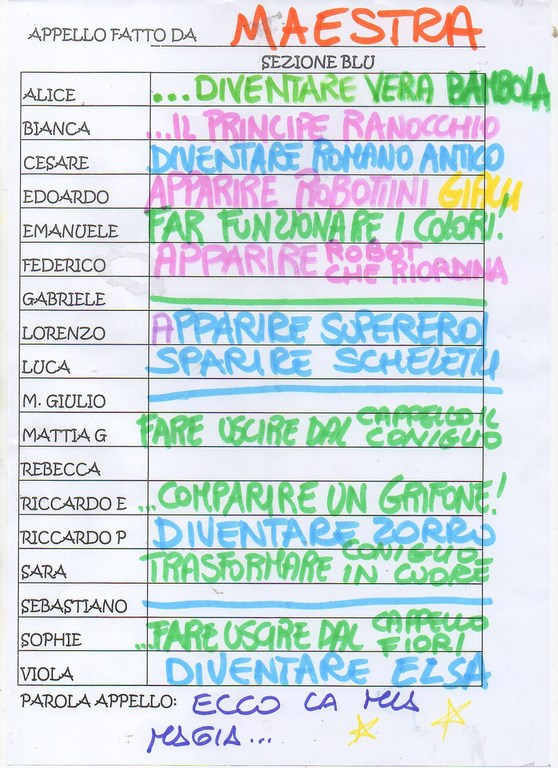 APPELLO FATTO DA MAESTRA
SEZIONE BLU
ALICE ...DIVENTARE VERA BAMBOLA
BIANCA ...IL PRINCIPE RANOCCHIO
CESARE DIVENTARE ROMANO ANTICO
EDOARDO APPARIRE ROBOTTINI GIALLI
EMANUELE FAR FUNZIONARE I COLORI!
FEDERICO APPARIRE ROBOT
CHE RIORDINA
GABRIELE
LORENZO APPARIRE SUPEREROI
LUCA SPARIRE SCHELETRI
M. GIULIO
MATTIA G FARE USCIRE DAL CAPPELLO IL
CONIGLIO
REBECCA
RICCARDO E ...COMPARIRE UN GRIFONE!
RICCARDO P DIVENTARE ZORRO
SARA TRASFORMARE CONIGLIO
IN CUORE
SEBASTIANO
SOPHIE ...FARE USCIRE DAL CAPPELLO
FIORI
VIOLA DIVENTARE ELSA
PAROLA APPELLO: ECCO LA MIA
MAGIA...